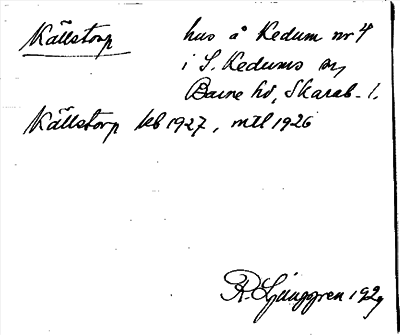 Källstorp hus å Kedum nr 4
i S. Kedums sn,
Barne hd, Skarab. l.
Källstorp kb 1927, mtl 1926
R. Ljunggren 1929